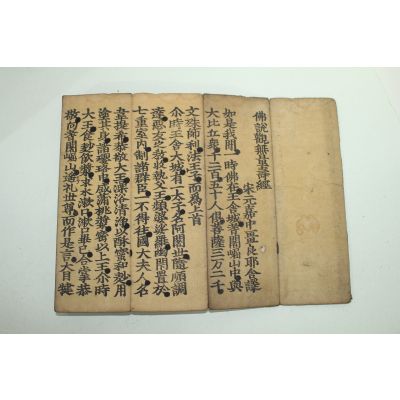 佛說觀無量壽經
宋元嘉中畺良耶舍譯
如是我聞一時佛在王舍城耆闍崛山中與
大比丘衆千二百五十人俱菩薩三万二千
文殊師利法王子而爲上首
尒時王舍大城有一太子名阿闍世隨順調
達惡友之教收執父王頻婆娑羅幽閉置於
七重室內制諸群臣一不得往國大夫人名
韋提希恭敬大王澡浴清淨以酥蜜和麨用
塗其身諸瓔珞中盛蒱桃漿密以上王尒時
大王食麨飮漿求水漱口漱口畢已合掌恭
敬向耆闍崛山遙礼世尊而作是言大目揵